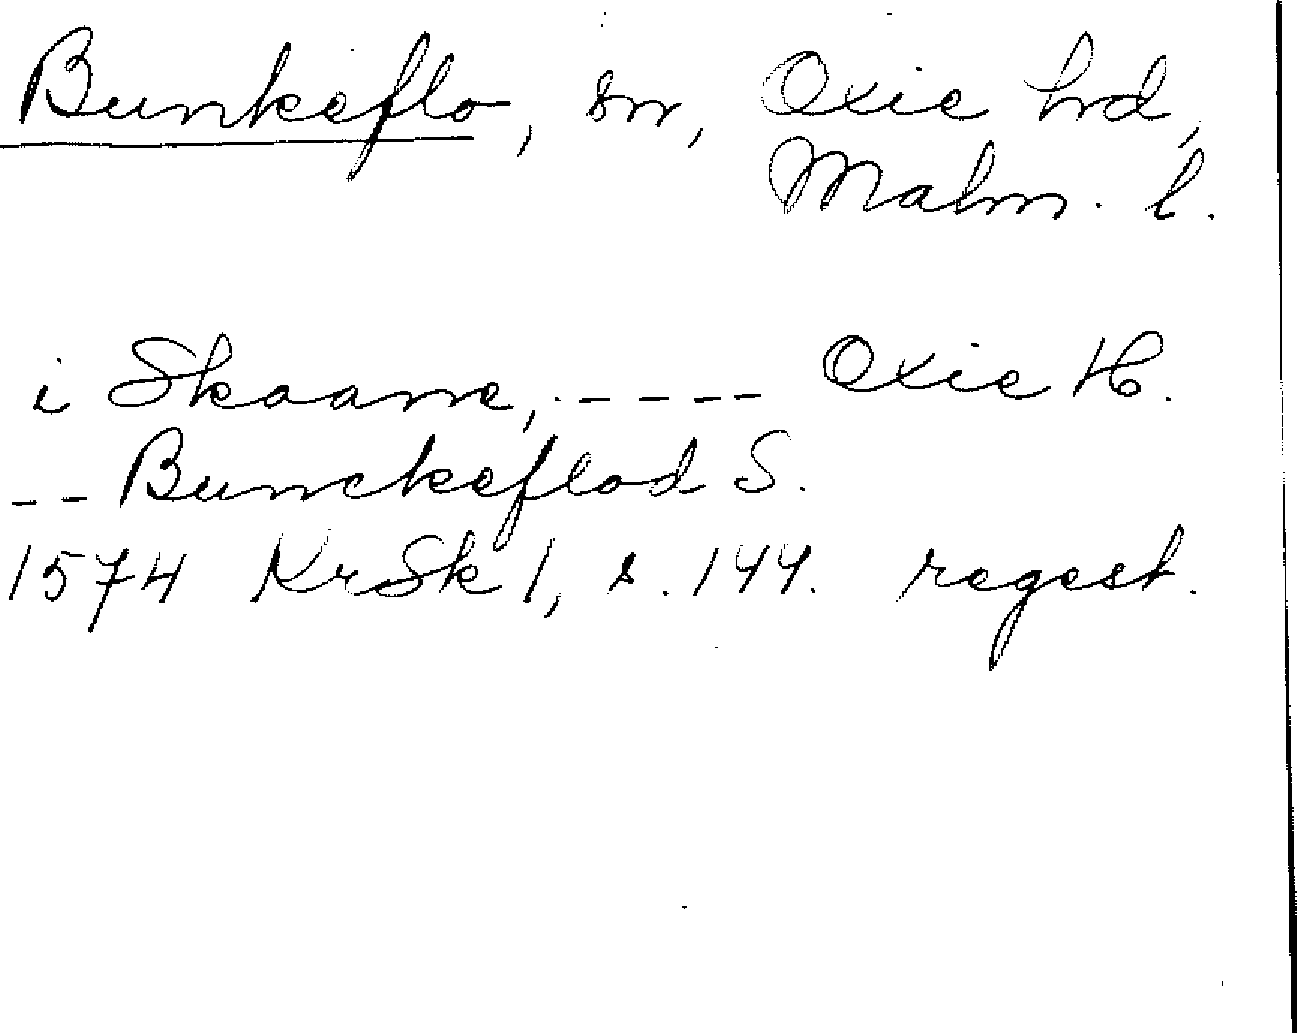 Bunkeflo, sn, Oxie hrd,
Malm. l.
i Skaane, ----- Oxie H.
-- Bunckeflod S.
1574 KrSk 1, s. 144. regest.